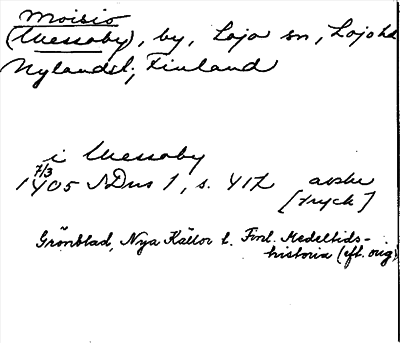 Moisio
(Messoby), by, Lojo sn, Lojo hd
Nylandsl., Finland
i Messoby
7/3
1405 SDns 1, s. 417 avskr
[tryck]
Grönblad, Nya Källor t. Finl. Medeltids-
historia (eft. orig)